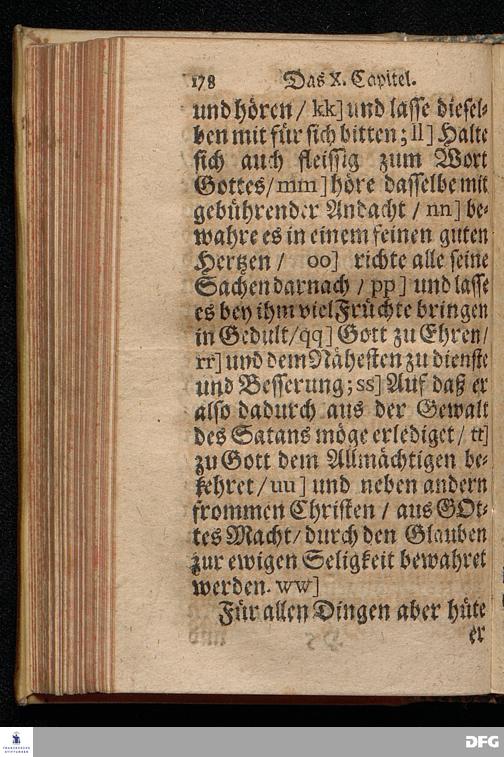 178 Das X. Capitel.
und hören / kk] und lasse diesel-
ben mit für sich bitten; ll] Halte
sich auch fleissig zum Wort
Gottes/ mm] höre dasselbe mit
gebührender Andacht / nn] be-
wahre es in einem feinen guten
Hertzen / oo] richte alle seine
Sachen darnach / pp] und lasse
es bey ihm viel Früchte bringen
in Gedult/ qq] Gott zu Ehren/
rr] und dem Nähesten zu dienste
und Besserung; ss] Auf daß er
also dadurch aus der Gewalt
des Satans möge erlediget / tt]
zu Gott dem Allmächtigen be-
kehret / uu] und neben andern
frommen Christen / aus GOt-
tes Macht/ durch den Glauben
zur ewigen Seligkeit bewahret
werden. ww]
Für allen Dingen aber hüte
er
FRANCKESCHE
STIFTUNGEN
DFG